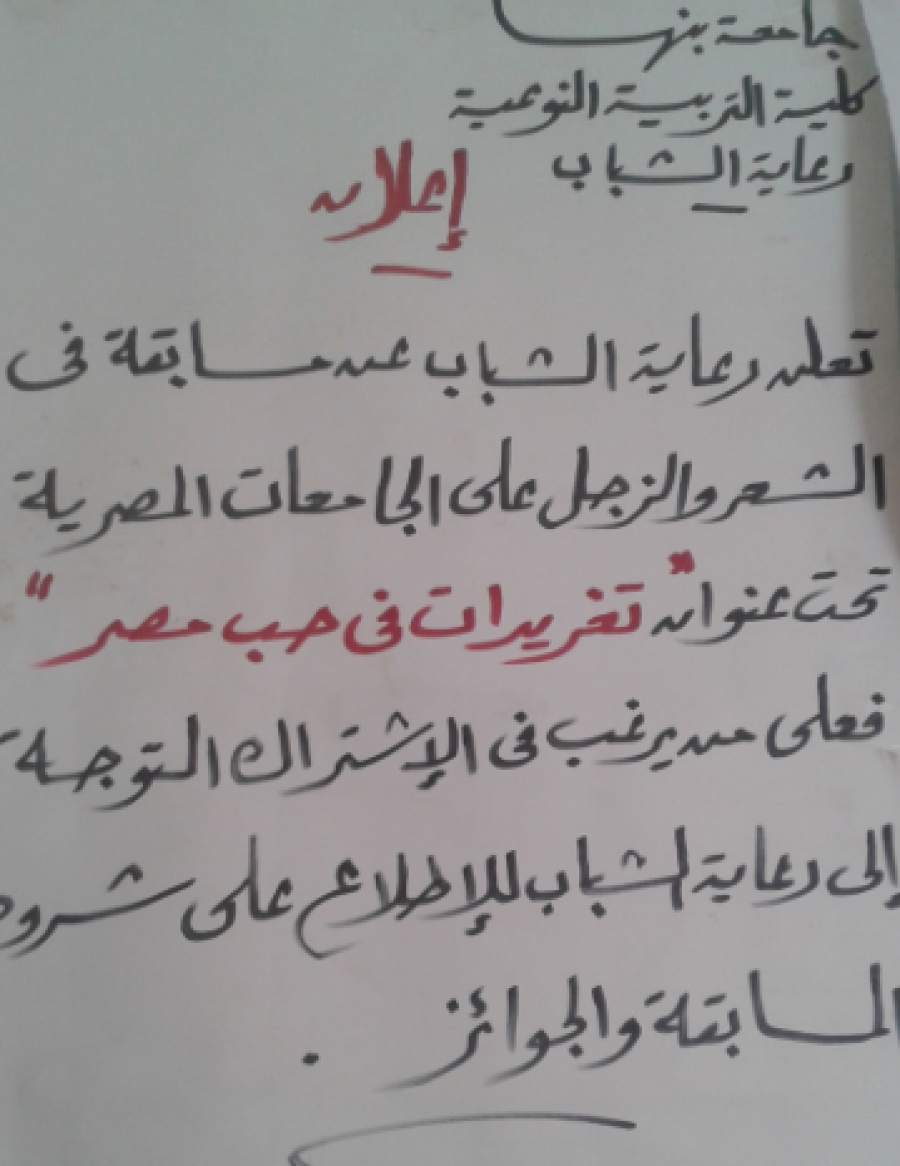 جامعة بنها
كلية التربية النوعية
رعاية الشباب
إعلان
تعلن رعاية الشباب عن مسابقة فى
الشعر والزجل على الجامعات المصرية
تحت عنوان "تغريدات فى حب مصر"
فعلى من يرغب فى الإشتراك التوجه
إلى رعاية الشباب للإطلاع على شرو
المسابقة والجوائز .